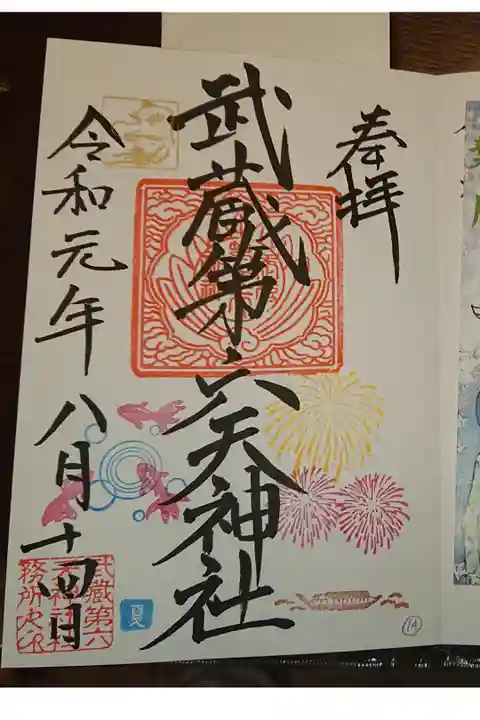 奉拝
武蔵第六天神社
令和元年八月十四日
武蔵第六
天神社社
務所之印
夏
14